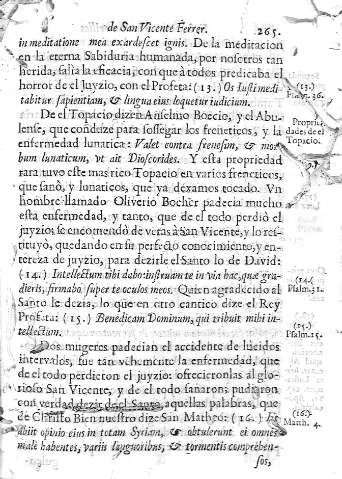 de San Vicente Ferrer. 265.
in meditatione mea exardescet ignis. De la meditacion
en la eterna Sabiduria humanada, por nosotros tan
herida, salia la eficacia, con que à todos predicaba el
horror de el juyzio, con el Profeta: (13.) Os Iusti medi
tabitur sapientiam, & lingua eius loquetur iudicium.
(13.)
Psalm. 36.
De el Topacio dizen Anselmo Boecio, y el Abu-
lense, que conduze para sossegar los freneticos, y la
enfermedad lunatica: Valet contra frenesim, & mor
bum lunaticum, ut ait Dioscorides. Y esta propriedad
Proprie-
dades de el
Topacio.
rara tuvo este mas rico Topacio en varios freneticos,
que sanò, y lunaticos, que ya dexamos tocado. Vn
hombre llamado Oliverio Bocher padecia mucho
esta enfermedad, y tanto, que de el todo perdiò el
juyzio: se encomendò de veras à San Vicente, y lo res
tituyò, quedando en su perfecto conocimiento, y en-
tereza de juyzio, para dezirle el Santo lo de David:
(14.) Intellectum tibi dabo: instruam te in via hac, quæ gra-
dieris, firmabo super te oculos meos. Quien agradecido al
(14.)
Psalm. 31.
Santo le dezia, lo que en otro cantico dize el Rey
Profeta: (15.) Benedicam Dominum, qui tribuit mihi in-
tellectum.
(15.)
Psalm. 15.
Dos mugeres padecian el accidente de lucidos
intervalos, fue tan vehemente la enfermedad, que
de el todo perdieron el juyzio: ofrecieronlas al glo-
rioso San Vicente, y de el todo sanaron: pudieron
con verdad dezir de el Santo, aquellas palabras, que
de Christo Bien nuestro dize San Matheo: (16.) Et
abiit opinio eius in totam Syriam, & obtulerunt ei omnes
male habentes, variis languoribus, & tormentis comprehen-
(16.)
Matth. 4.
sos,